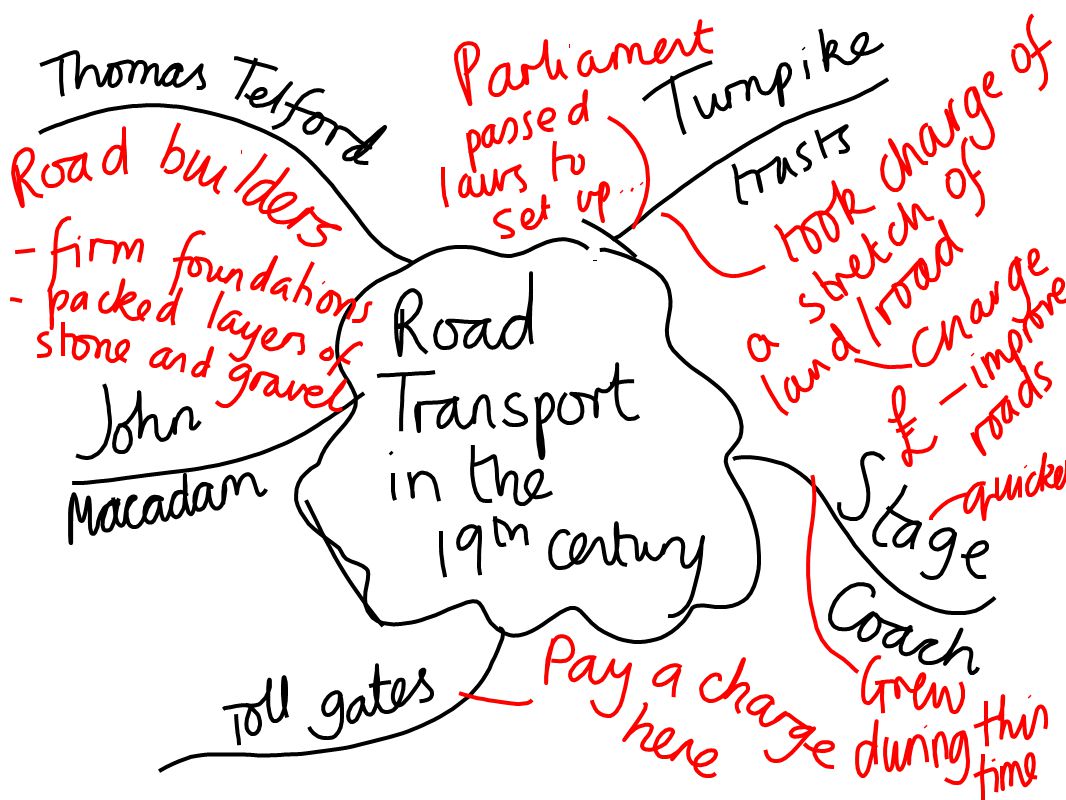 Thomas Telford
Road builders
- firm foundations
- packed layers of
stone and gravel
John
Macadam
Parliament
passed
laws to
set up...
Turnpike
trusts
took charge of
a stretch of
land/road
charge
£ - improve
roads
Road
Transport
in the
19th century
Stage
Coach
quicker
Grew
during this
time
Toll gates
Pay a charge
here